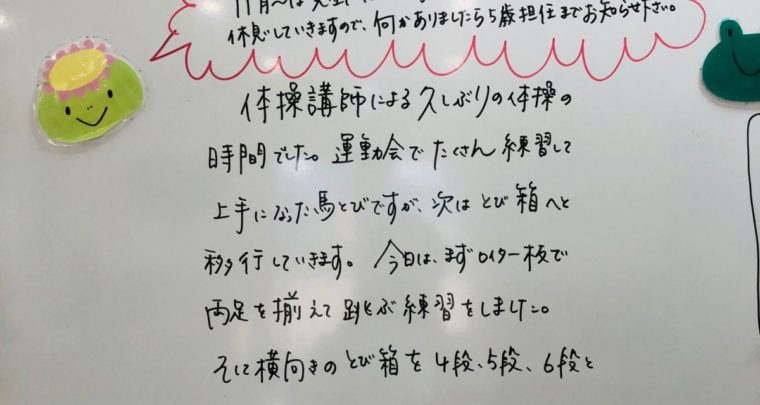 休息していきますので、何かありましたら5歳担任までお知らせ下さい。
体操講師による久しぶりの体操の
時間でした。運動会でたくさん練習して
上手になった馬とびですが、次はとび箱へと
移行していきます。今日は、まずロイター板で
両足を揃えて跳ぶ練習をしました。
そして横向きのとび箱を4段、5段、6段と